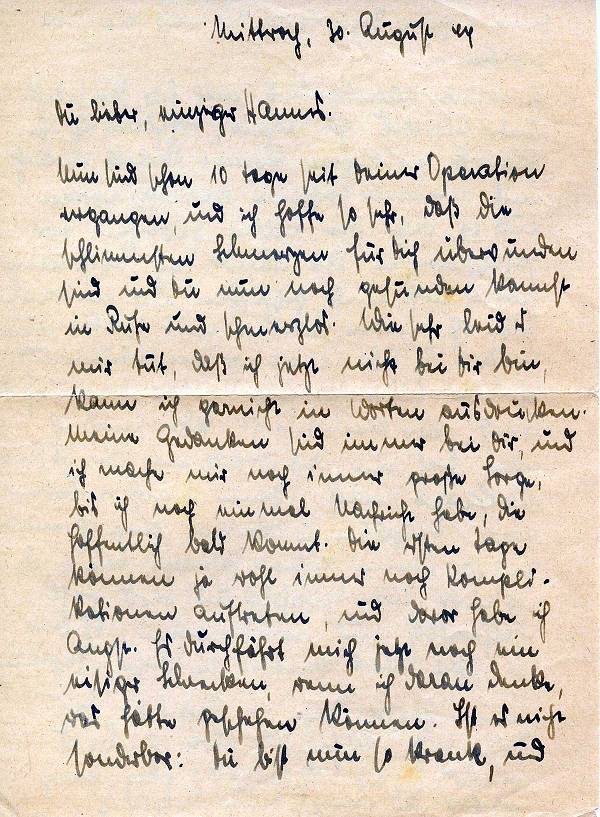 Mittwoch, 30. August 44
Du lieber, einziger Hannes.
Nun sind schon 10 Tage seit deiner Operation
vergangen, und ich hoffe so sehr, daß die
schlimmsten Schmerzen für dich überwunden
sind und du nun noch gesunden kannst
in Ruhe und schmerzlos. Wie sehr leid es
mir tut, daß ich jetzt nicht bei dir bin,
kann ich garnicht in Worten ausdrücken.
Meine Gedanken sind immer bei dir, und
ich mache mir noch immer große Sorge,
bis ich noch einmal Nachricht habe, die
hoffentlich bald kommt. Die ersten Tage
können ja wohl immer noch Kompli-
kationen auftreten, und davor habe ich
Angst. Es durchfährt mich jetzt noch ein
eisiger Schrecken, wenn ich daran denke,
was hätte geschehen können. Ist es nicht
sonderbar: du bist nun so krank, und